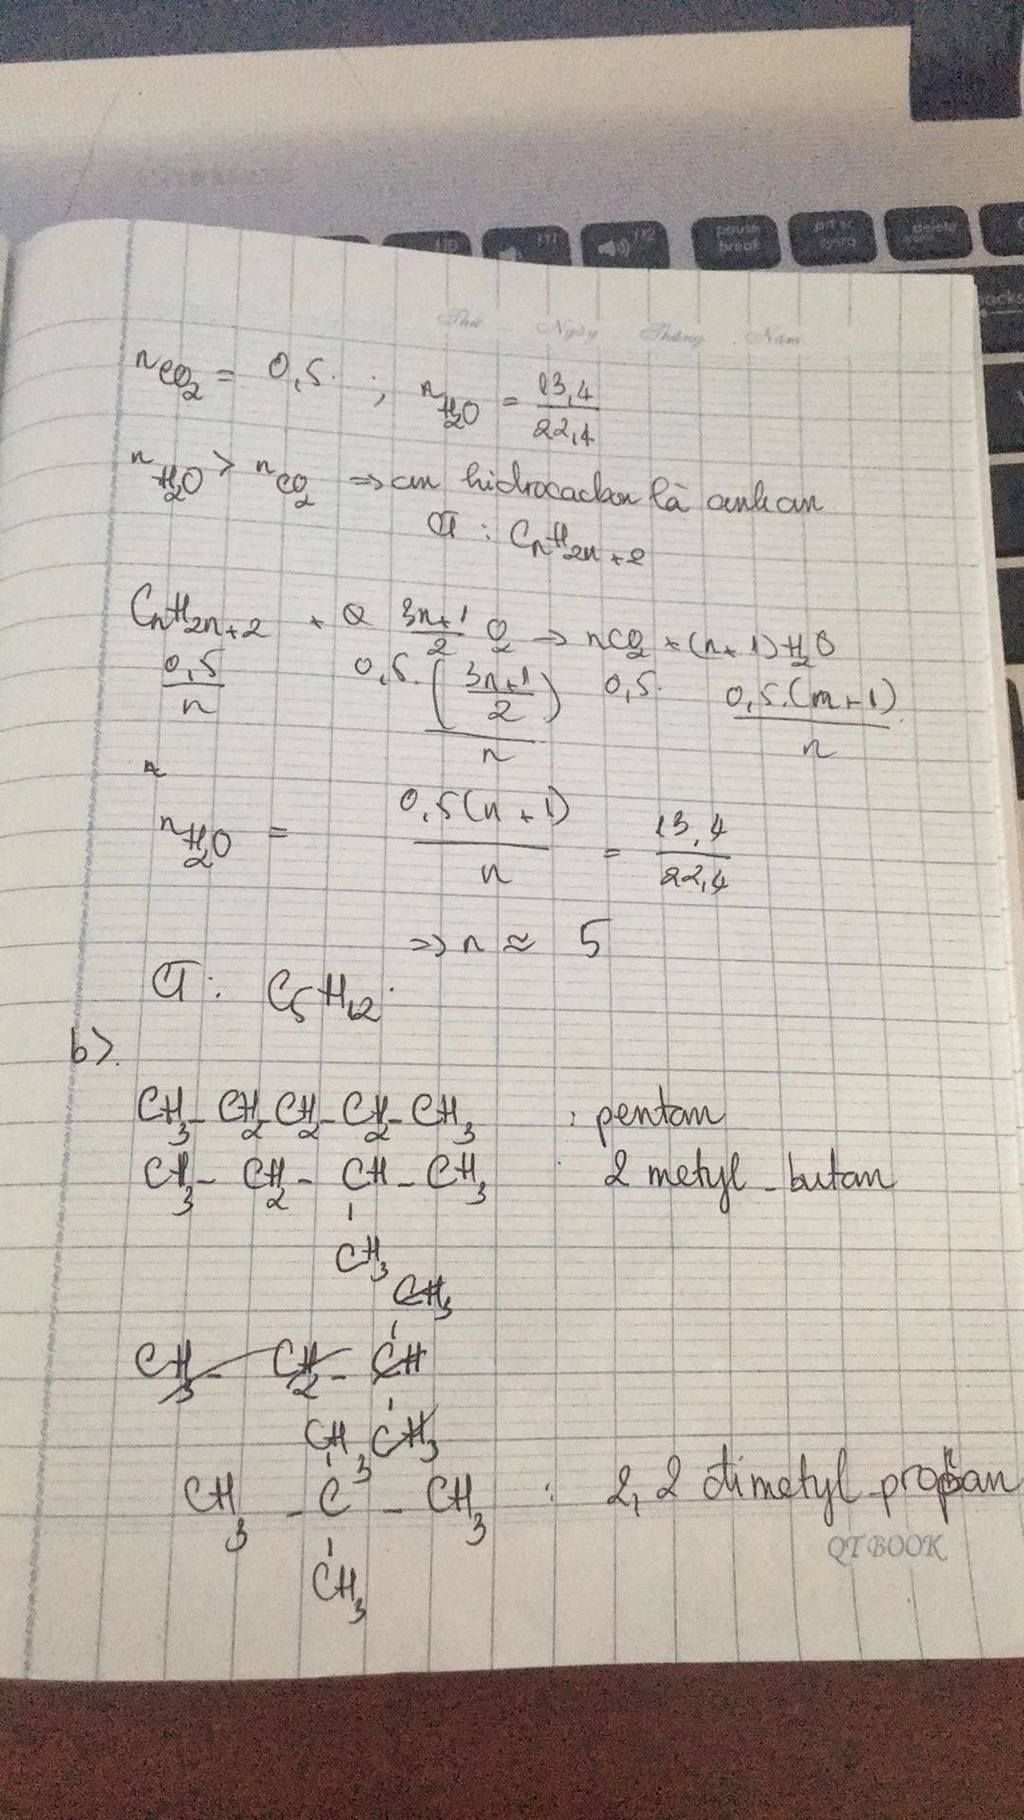 Thứ Ngày Tháng Năm
nCO2 = 0,5. ; nH2O = 13,4/22,4
nH2O > nCO2 => hidrocacbon là ankan
CT : CnH2n+2
CnH2n+2 + 3n+1/2 O2 -> nCO2 + (n+1) H2O
0,5/n 0,5.(3n+1/2)/n 0,5. 0,5.(n+1)/n
nH2O = 0,5(n+1)/n = 13,4/22,4
=> n ≈ 5
CT : C5H12.
b>.
CH3 - CH2 CH2 - CH2 - CH3 : pentan
CH3 - CH2 - CH - CH3 : 2 metyl - butan
CH3
CH3
CH3 - CH2 - CH
CH3 CH3
CH3 - C - CH3 : 2, 2 đimetyl propan
CH3
QTBOOK
pause break
prt sc sysrq
delete
F10
F11
F12